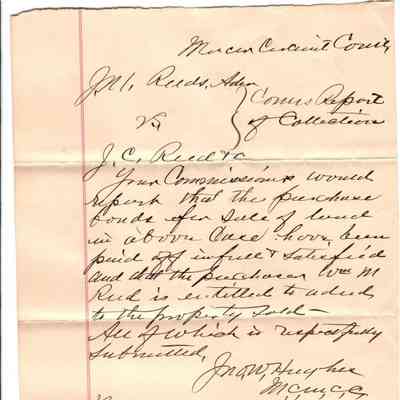 Mercer Circuit Court
J. M. Reeds, Admr
Vs } Coms Report
of Collection
J. C. Reed &c
Your Commissioner would
report that the purchase
bonds for sale of land
in above case have been
paid off in full & satisfied
and that the purchaser Wm M
Reed is entitled to a deed
to the property sold—
All of which is respectfully
submitted,
Jno W. Hughes
M.C.M.C.C.